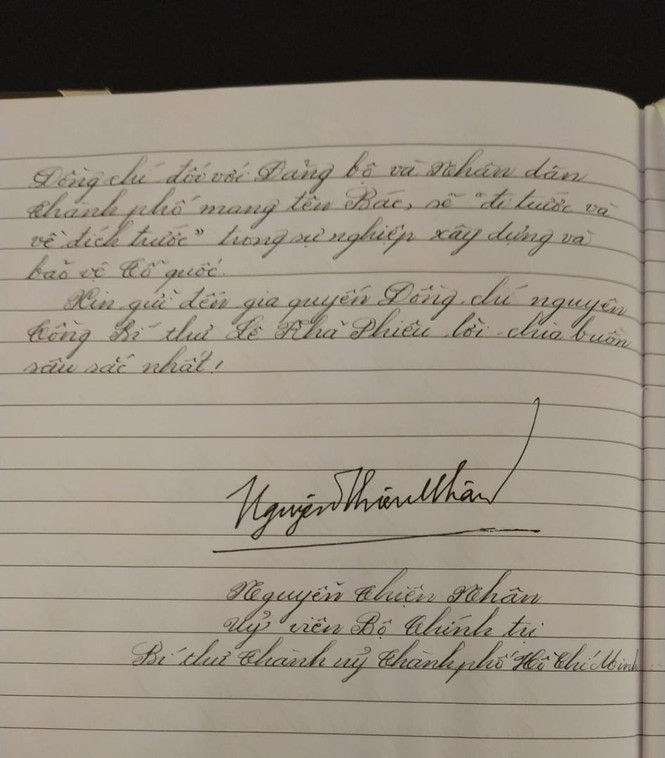 Đồng chí đối với Đảng bộ và Nhân dân
Thành phố mang tên Bác, sẽ "đi trước và
về đích trước" trong sự nghiệp xây dựng và
bảo vệ Tổ quốc.
Xin gửi đến gia quyến Đồng chí nguyên
Tổng Bí thư Lê Khả Phiêu lời chia buồn
sâu sắc nhất!
Nguyễn Thiện Nhân
Nguyễn Thiện Nhân
Uỷ viên Bộ Chính trị
Bí thư Thành uỷ Thành phố Hồ Chí Minh